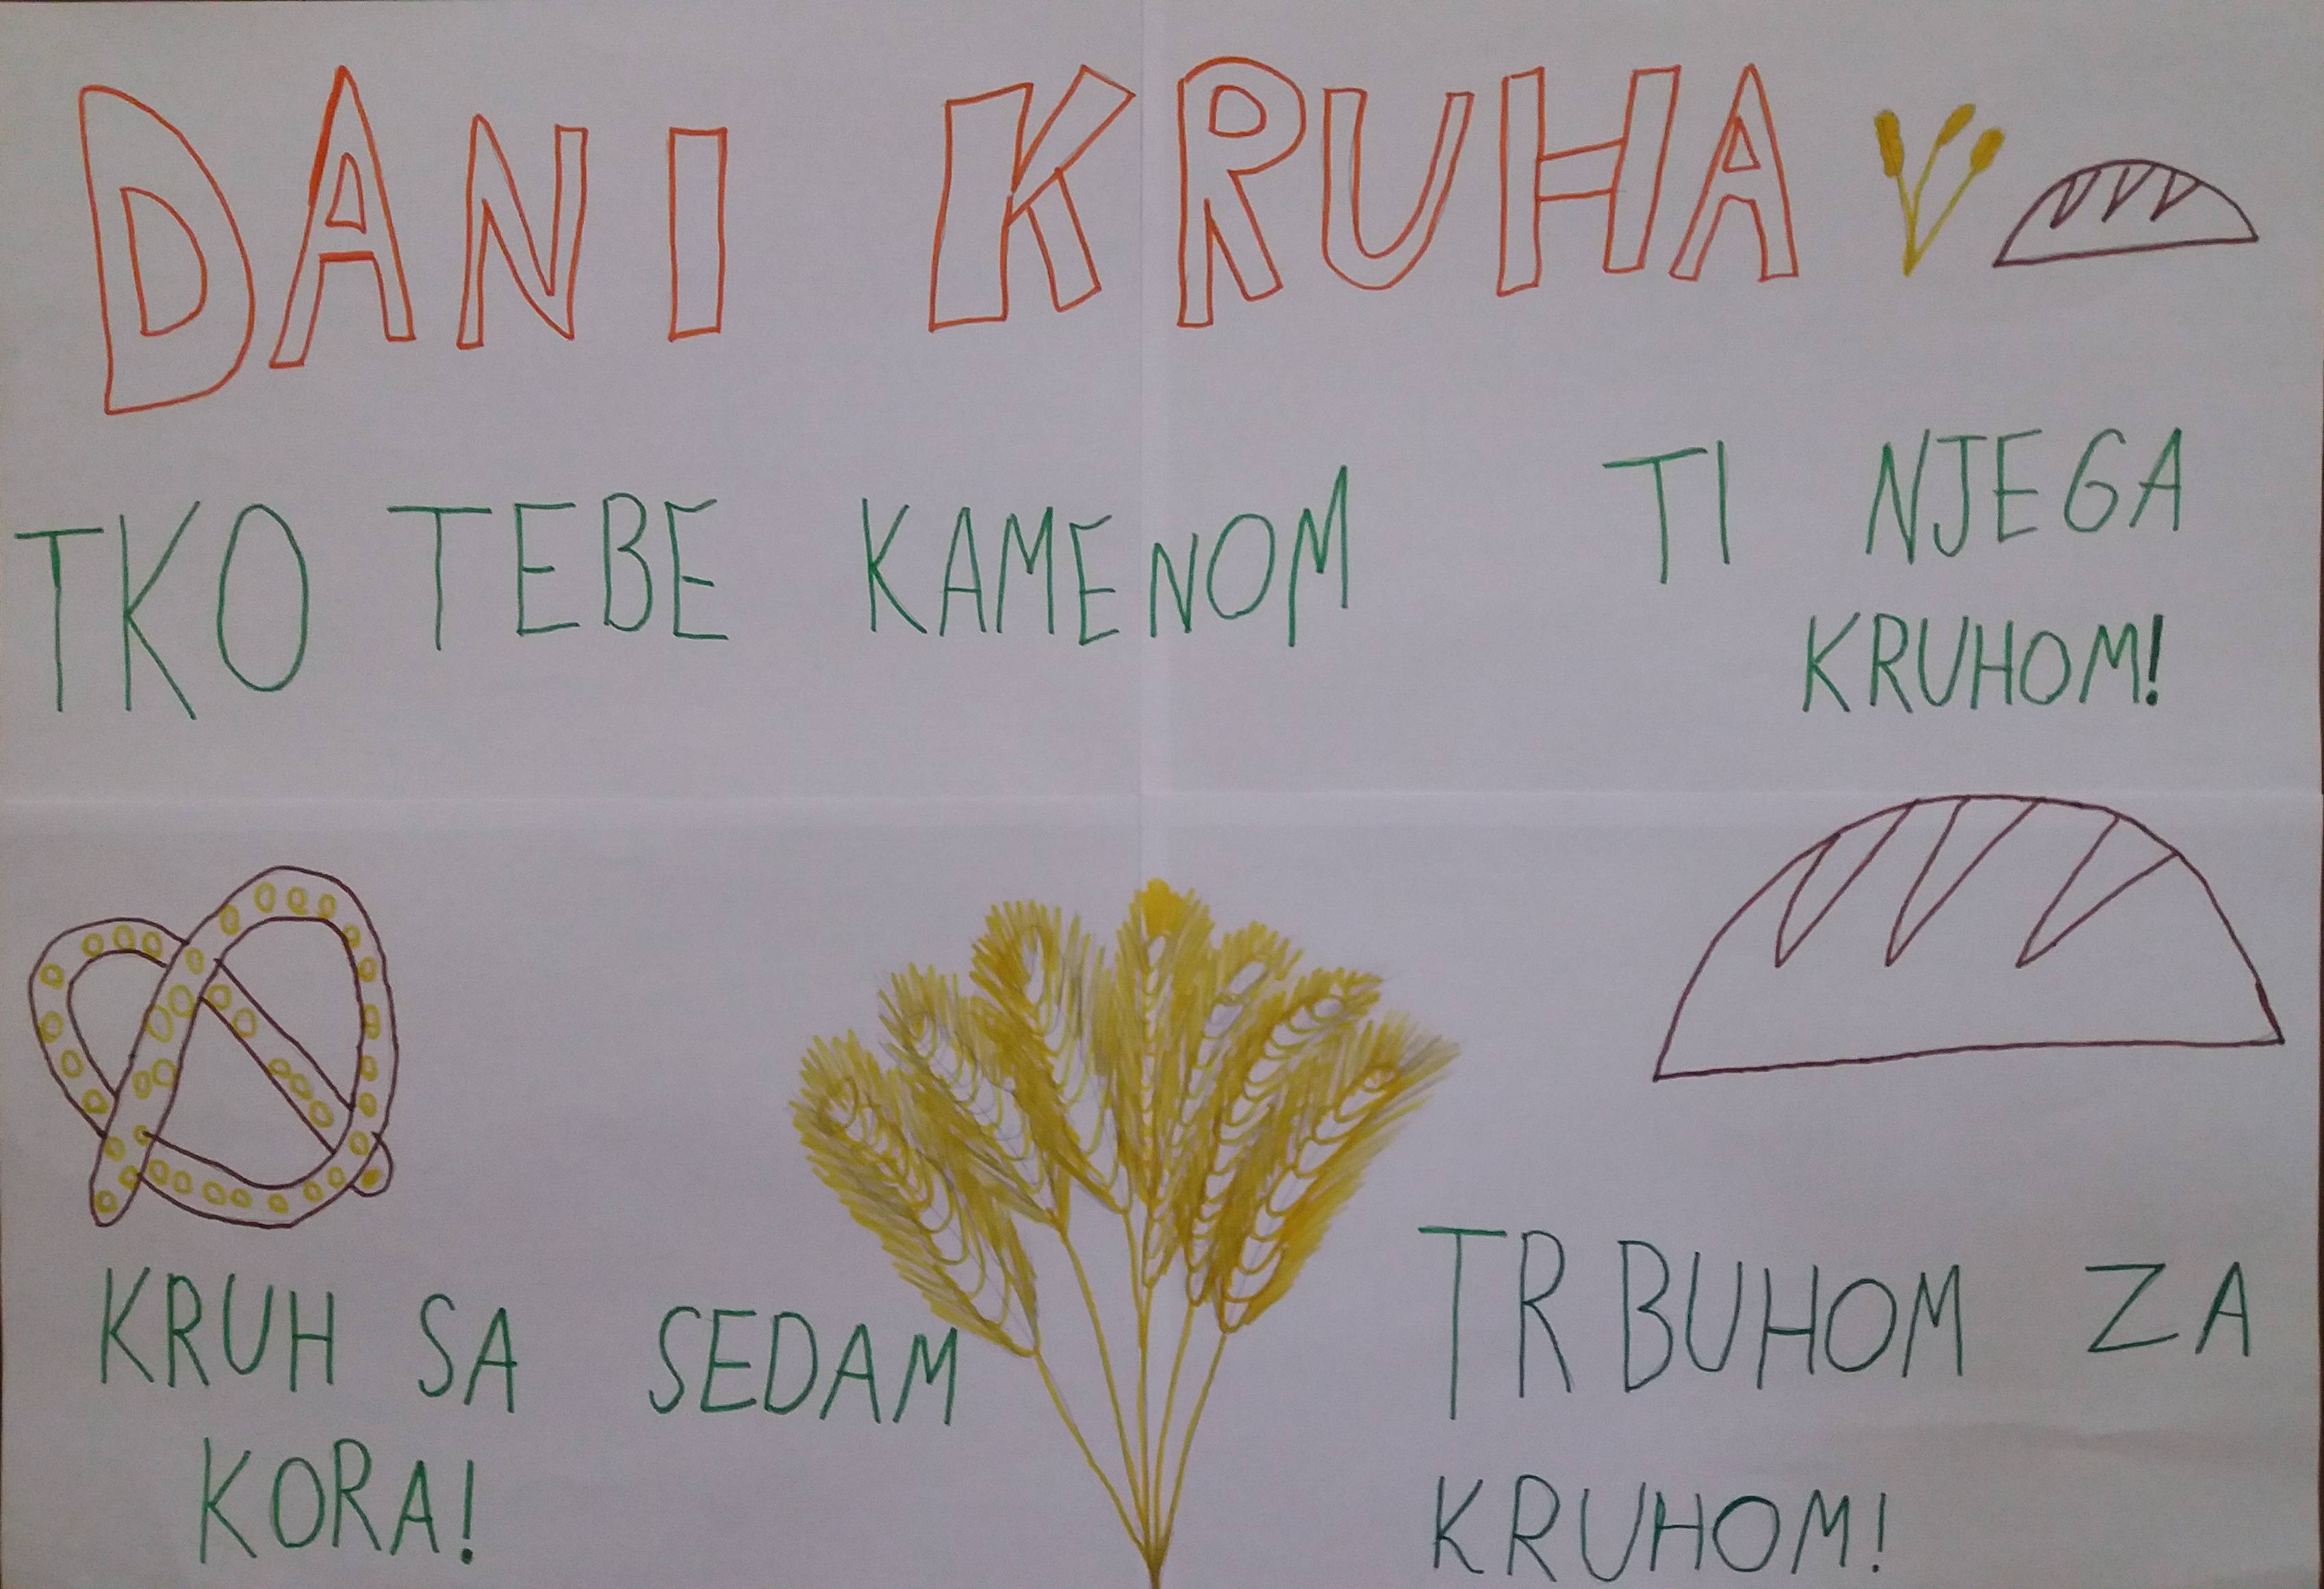 DANI KRUHA
TKO TEBE KAMENOM TI NJEGA
KRUHOM!
KRUH SA SEDAM
KORA!
TRBUHOM ZA
KRUHOM!